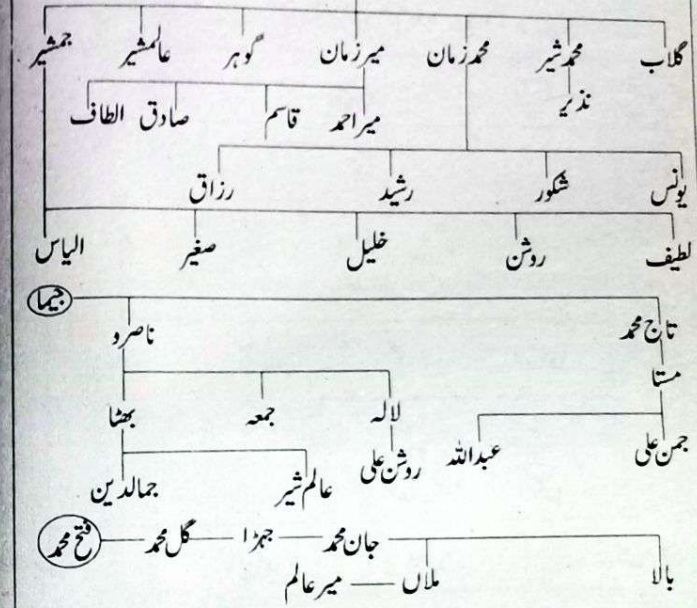 گلاب محمد شیر محمد زمان میر زمان گوہر عالمشیر جمشیر
نذیر میر احمد قاسم صادق الطاف
یونس شکور رشید رزاق
لطیف روشن خلیل صغیر الیاس
جیما
تاج محمد ناصرو
مستا
لالہ جمعہ بھٹا
جمن علی عبداللہ روشن علی عالم شیر جمالدین
بالا جان محمد جہڑا گل محمد فتح محمد
ملاں میر عالم